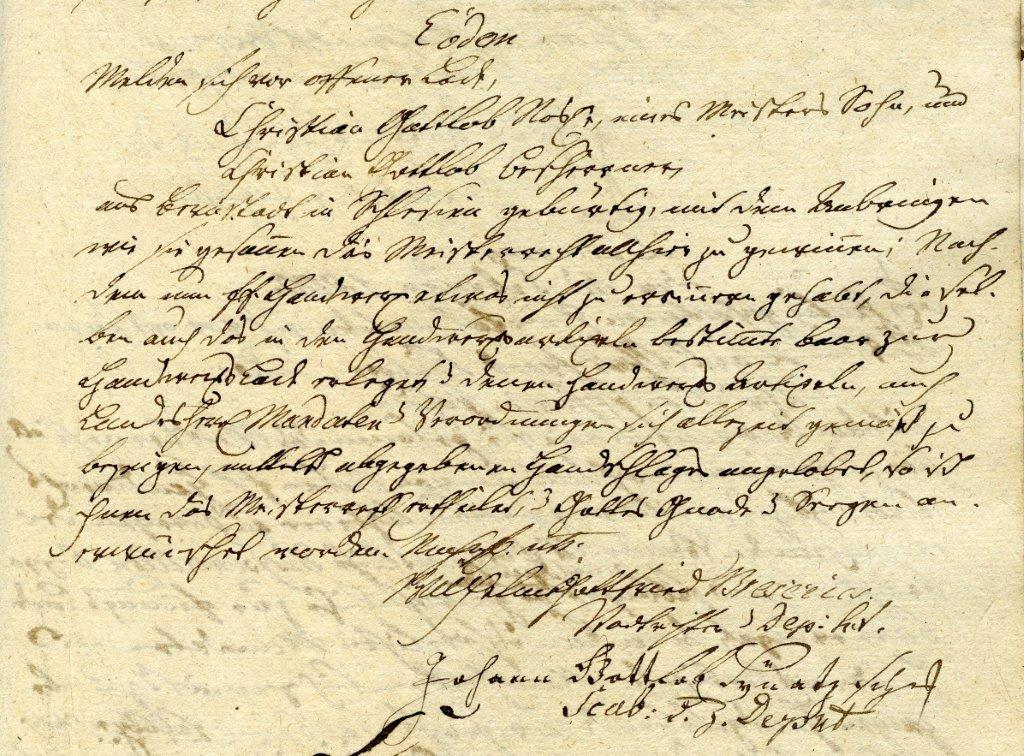 Eodem
Melden sich vor offener Lade,
Christian Gottlob Nosche, eines Meisters Sohn, und
Christian Gottlob
aus Bernstadt in Schlesien gebürtig, mit dem Anbringen
wie sie gesonnen das Meisterrecht allhier zu gewinnen; Nach-
dem nun Handwerk etwas nicht zu erinnern gehabt, diesel-
ben auch das in den Handwerksartikeln bestimte baar zur
Handwerks Lade erleget, denen Handwerks Artikeln, auch
LandesHerrl Mandaten Verordnungen sich allezeit gemäß zu
bezeigen, mittelst abgegebenen Handschlags angelobet, so ist
ihnen das Meisterrecht ertheilet, Gottes Gnade Seegen an-
erwünschet worden. Nachr. uts.
Wilhelm Gottfried
Stadtrichter Deput.
Johann Gottlob
Scab: Deput